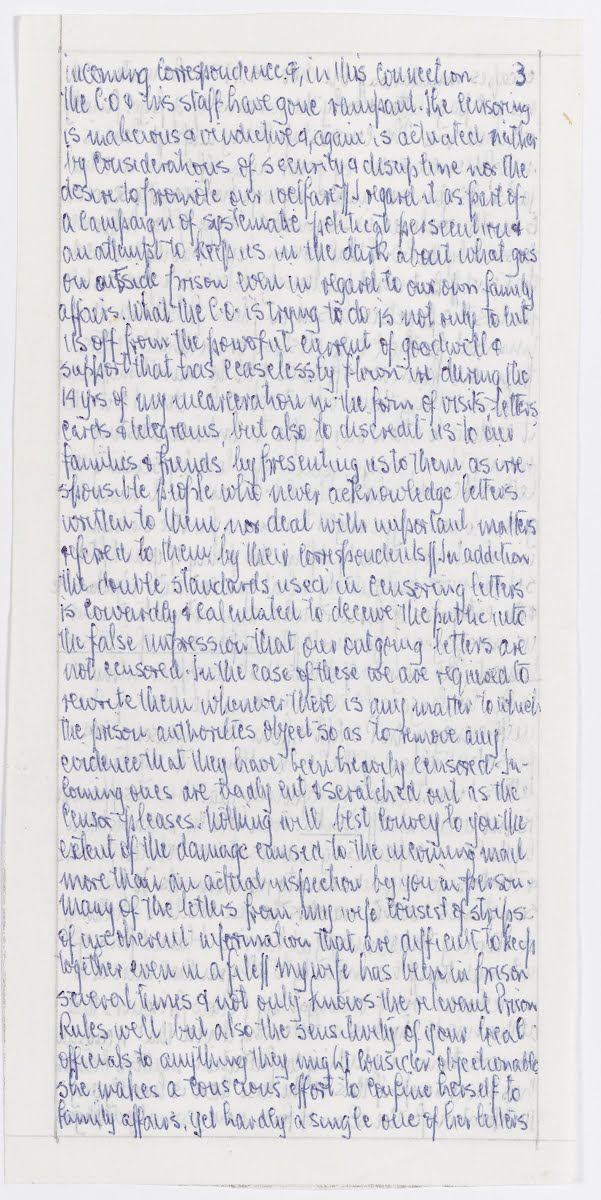 incoming correspondence &, in this connection 3
the C.O & his staff have gone rampant. The censoring
is malicious & vindictive &, again is actuated neither
by considerations of security & discipline nor the
desire to promote our welfare // I regard it as part of
a campaign of systematic political persecution &
an attempt to keep us in the dark about what goes
on outside prison even in regard to our own family
affairs. What the C.O. is trying to do is not only to cut
us off from the powerful current of goodwill &
support that has ceaselessly flown in during the
14 yrs of my incarceration in the form of visits, letters,
cards & telegrams, but also to discredit us to our
families & friends by presenting us to them as irre-
sponsible people who never acknowledge letters
written to them nor deal with important matters
refered to them by their correspondents // In addition
the double standards used in censoring letters
is cowardly & calculated to deceive the public into
the false impression that our outgoing letters are
not censored. In the case of these we are required to
rewrite them whenever there is any matter to which
the prison authorities object so as to remove any
evidence that they have been heavily censored. In-
coming ones are badly cut & scratched out as the
censor pleases. Nothing will best convey to you the
extent of the damage caused to the incoming mail
more than an actual inspection by you in person.
Many of the letters from my wife consist of strips
of incoherent information that are difficult to keep
together even in a file // My wife has been in prison
several times & not only knows the relevant Prison
Rules well, but also the sensitivity of your local
officials to anything they might consider objectionable
She makes a conscious effort to confine herself to
family affairs, yet hardly a single one of her letters